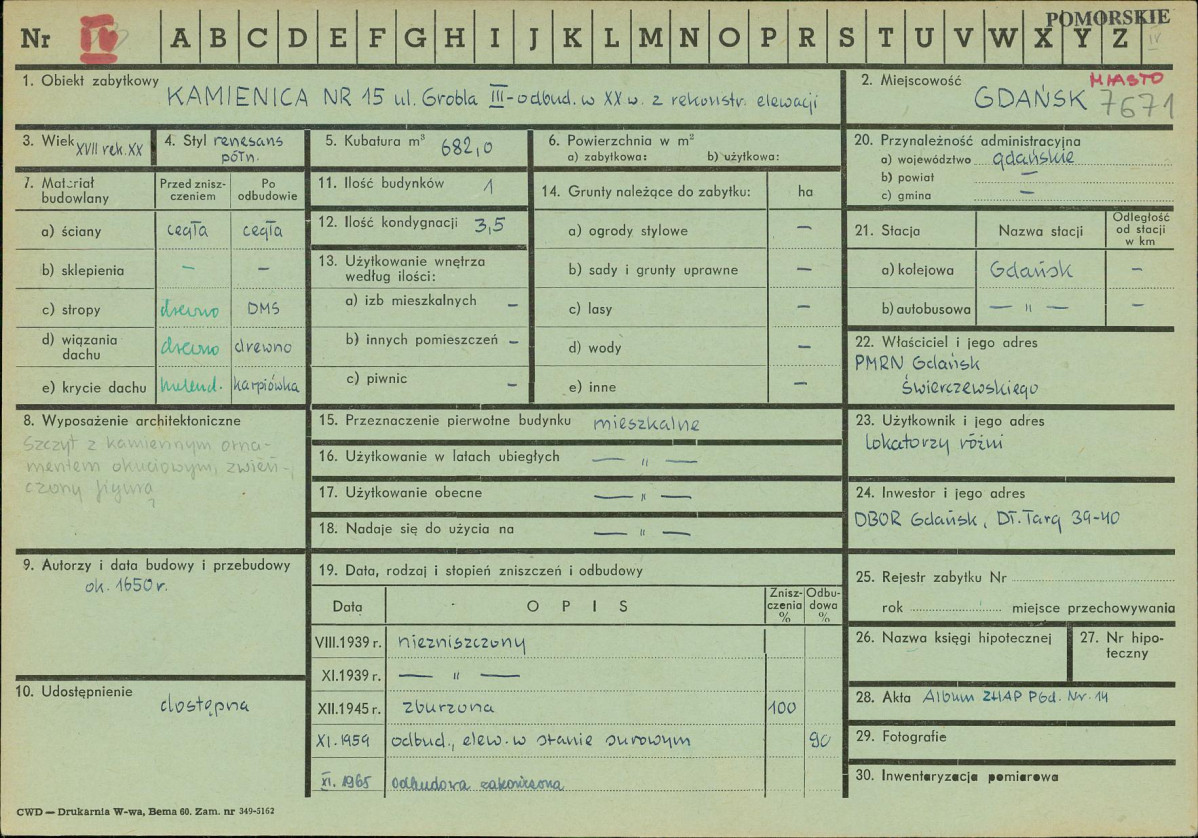 POMORSKIE
Nr IV A B C D E F G H I J K L M N O P R S T U V W X Y Z IV
1. Obiekt zabytkowy
KAMIENICA NR 15 ul. Grobla III-odbud. w XX w. z rekonstr. elewacji
2. Miejscowość MIASTO
GDAŃSK 7671
3. Wiek XVII rek. XX
4. Styl renesans
półn.
5. Kubatura m³ 682,0
6. Powierzchnia w m²
a) zabytkowa: b) użytkowa:
20. Przynależność administracyjna
a) województwo gdańskie
b) powiat —
c) gmina —
7. Materiał budowlany
Przed znisz-
czeniem
Po
odbudowie
a) ściany cegła cegła
b) sklepienia — —
c) stropy drewno DMS
d) wiązania
dachu drewno drewno
e) krycie dachu holend. karpiówka
11. Ilość budynków 1
12. Ilość kondygnacji 3,5
13. Użytkowanie wnętrza
według ilości:
a) izb mieszkalnych —
b) innych pomieszczeń —
c) piwnic —
14. Grunty należące do zabytku: ha
a) ogrody stylowe —
b) sady i grunty uprawne —
c) lasy —
d) wody —
e) inne —
21. Stacja Nazwa stacji
Odległość
od stacji
w km
a) kolejowa Gdańsk —
b) autobusowa — " — —
22. Właściciel i jego adres
PMRN Gdańsk
Świerczewskiego
8. Wyposażenie architektoniczne
Szczyt z kamiennym orna-
mentem okuciowym, zwień-
czony figurą
?
15. Przeznaczenie pierwotne budynku mieszkalne
16. Użytkowanie w latach ubiegłych — " —
17. Użytkowanie obecne — " —
18. Nadaje się do użycia na — " —
23. Użytkownik i jego adres
lokatorzy różni
24. Inwestor i jego adres
DBOR Gdańsk, Dł. Targ 39-40
9. Autorzy i data budowy i przebudowy
ok. 1650 r.
19. Data, rodzaj i stopień zniszczeń i odbudowy
Data OPIS
Znisz-
czenia
%
Odbu-
dowa
%
VIII.1939 r. niezniszczony
XI.1939 r. — " —
XII.1945 r. zburzona 100
XI.1959 odbud., elew. w stanie surowym 90
XI. 1965 odbudowa zakończona
25. Rejestr zabytku Nr
rok miejsce przechowywania
26. Nazwa księgi hipotecznej
27. Nr hipo-
teczny
10. Udostępnienie
dostępna
28. Akta Album ZHAP PGd. Nr. 14
29. Fotografie
30. Inwentaryzacja pomiarowa
CWD — Drukarnia W-wa, Bema 60. Zam. nr 349-5162